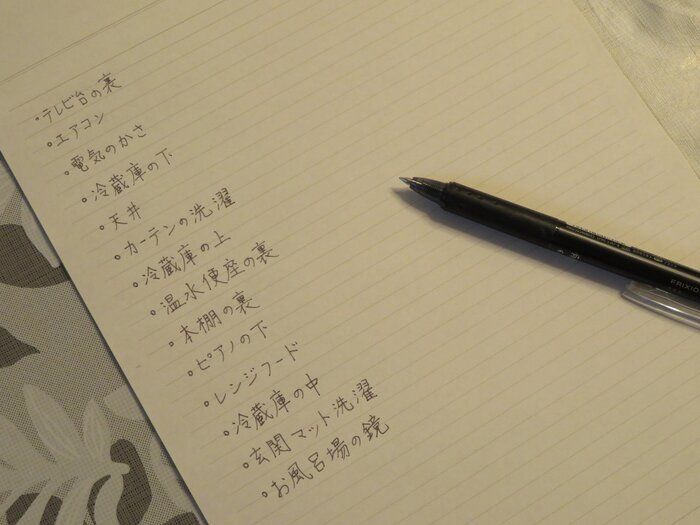 ・テレビ台の裏
・エアコン
・電気のかさ
・冷蔵庫の下
・天井
・カーテンの洗濯
・冷蔵庫の上
・温水便座の裏
・本棚の裏
・ピアノの下
・レンジフード
・冷蔵庫の中
・玄関マット洗濯
・お風呂場の鏡
FRIXION